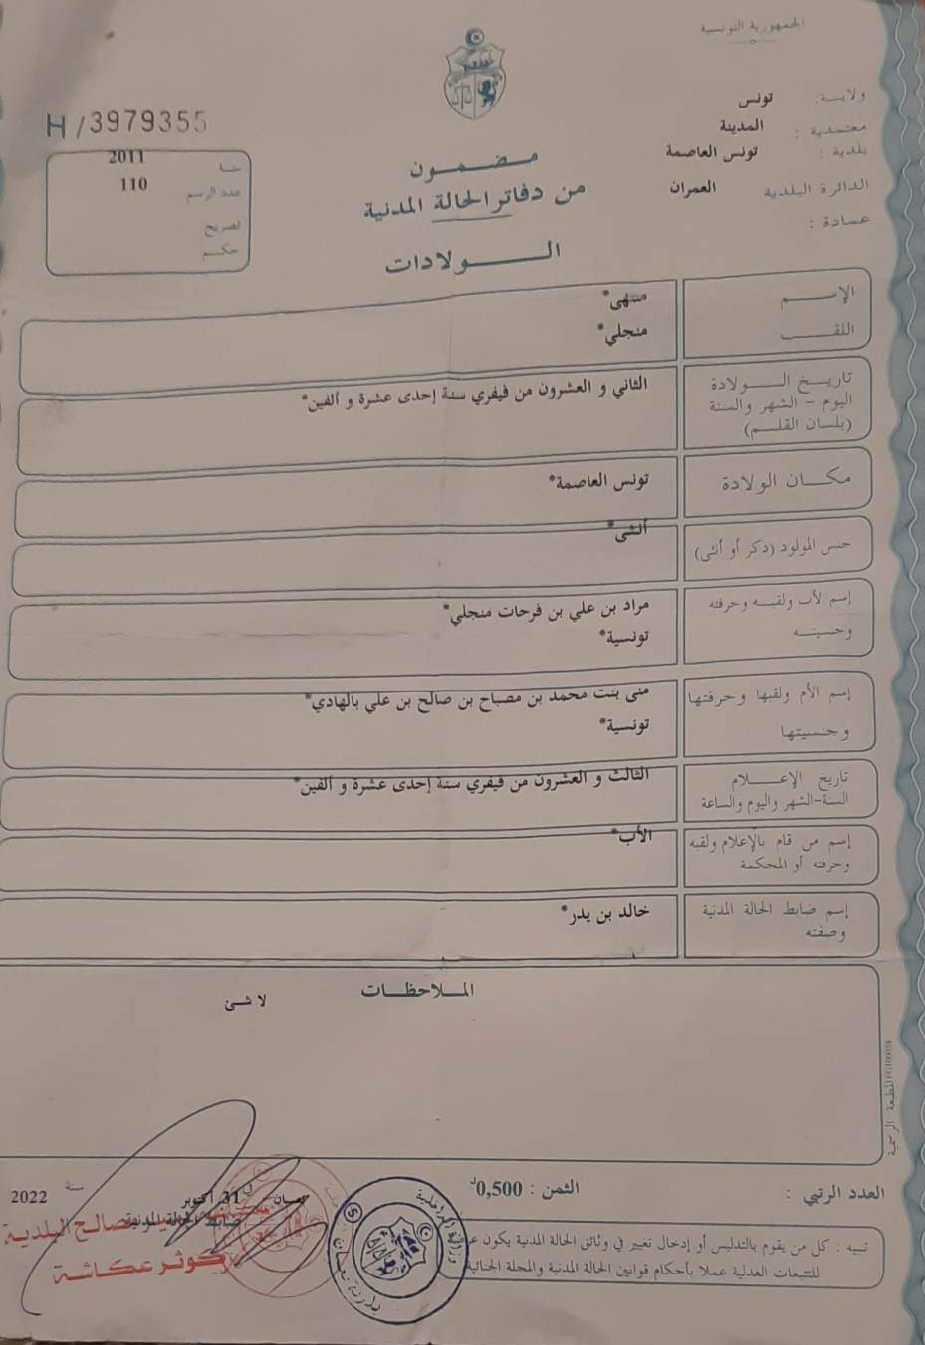 الجمهورية التونسية
ولايــة: تونس
معتمدية : المدينة
بلدية : تونس العاصمة
الدائرة البلدية العمران
عمادة :
H/3979355
سنة 2011
عدد الرسم 110
تصريح
حكم
مضمون
من دفاتر الحالة المدنية
الولادات
الإسم منتهى*
اللقب منجلي*
تاريخ الولادة
اليوم - الشهر والسنة
(بلسان القلم)
الثاني و العشرون من فيفري سنة إحدى عشرة و ألفين*
مكان الولادة تونس العاصمة*
جنس المولود (ذكر أو أنثى) أنثى*
إسم لأب ولقبه وحرفته
وجنسيته
مراد بن علي بن فرحات منجلي*
تونسية*
إسم الأم ولقبها وحرفتها
وجنسيتها
منى بنت محمد بن مصباح بن صالح بن علي بالهادي*
تونسية*
تاريخ الإعلام
السنة-الشهر واليوم والساعة
الثالث و العشرون من فيفري سنة إحدى عشرة و ألفين*
إسم من قام بالإعلام ولقبه
وحرفته أو المحكمة
الأب*
إسم ضابط الحالة المدنية
وصفته
خالد بن بدر*
الملاحظات
لا شئ
المطبعة الرسمية
العدد الرتبي :
الثمن : 0,500د
في 31 أكتوبر سنة 2022
ضابط الحالة المدنية
كوثر عكاشة
وزارة الداخلية
تنبيه : كل من يقوم بالتدليس أو إدخال تغيير في وثائق الحالة المدنية يكون
للتتبعات العدلية عملا بأحكام قوانين الحالة المدنية والمجلة الجنائية